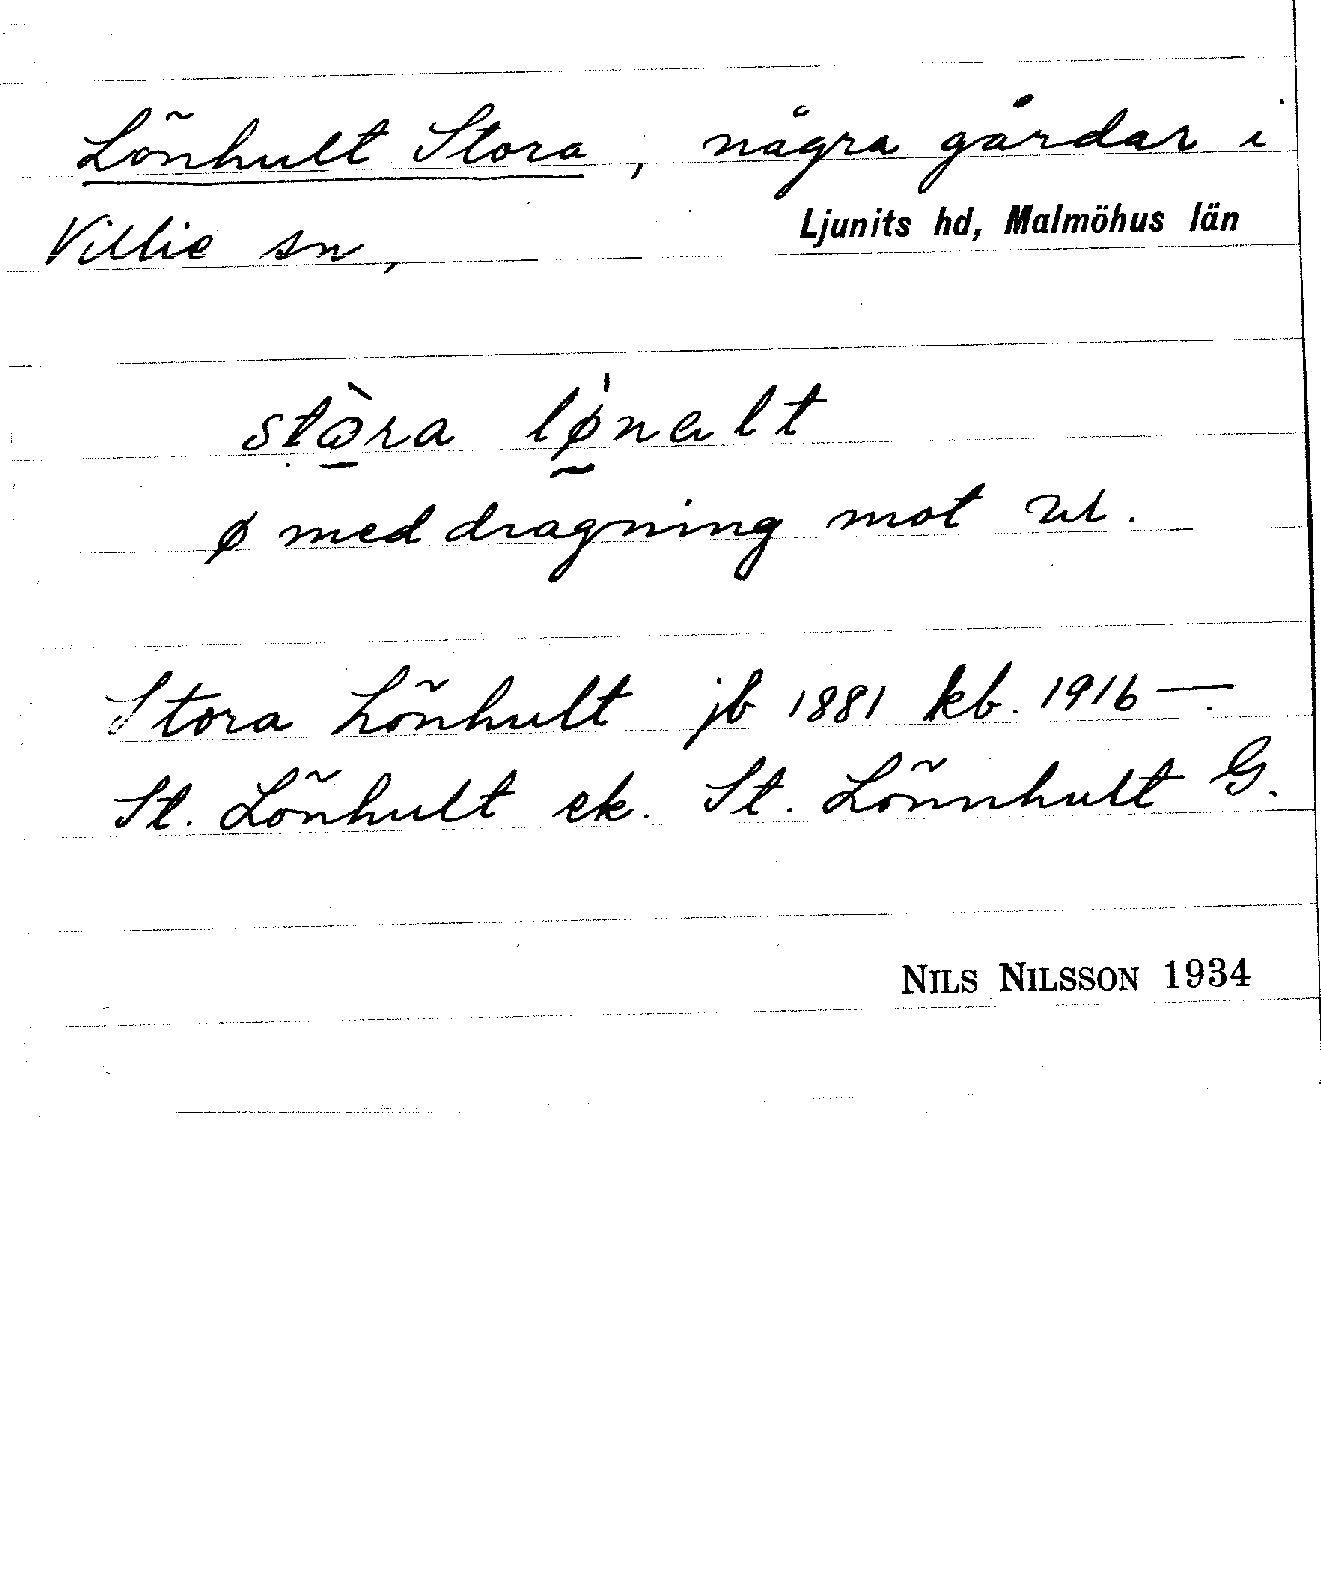 Lönhult Stora, några gårdar i
Villie sn, Ljunits hd, Malmöhus län
stòra lǿ̰nalt
ø med dragning mot
Stora Lönhult jb 1881 kb. 1916 —.
St. Lönhult ek. St. Lönnhult G.
NILS NILSSON 1934